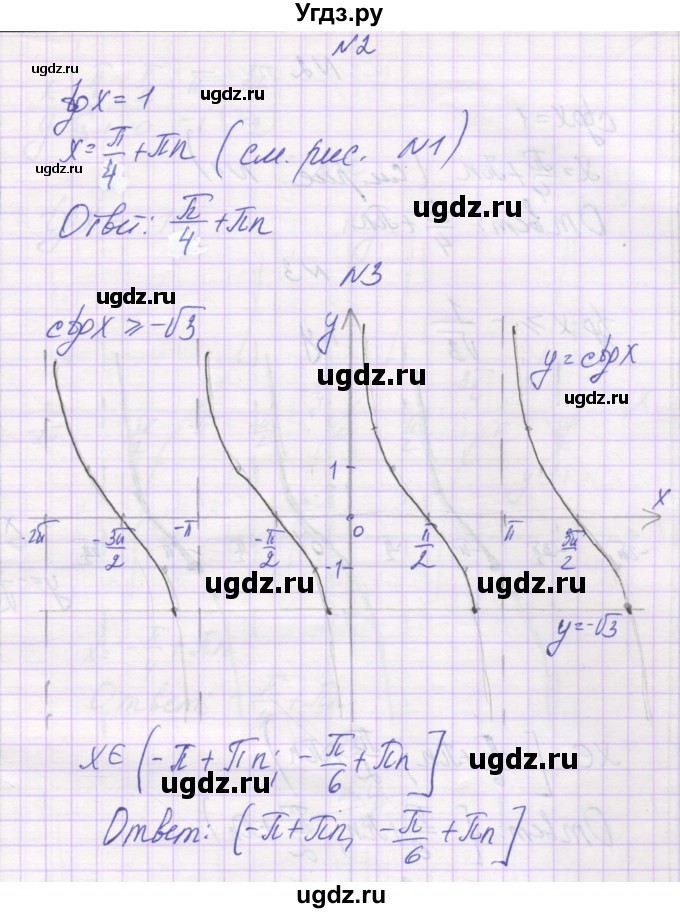 Угдз.ру
N2
ugdz.ru
tgx = 1
ugdz.ru
x = π/4 + πn (см. рис. N1)
ugdz.ru
ugdz.ru
Ответ: π/4 + πn
N3
ugdz.ru
ctgx ≥ -√3
y
ugdz.ru
y = ctgx
ugdz.ru
1
x
-2π
-3π/2
-π
-π/2
0
π/2
π
3π/2
-1
ugdz.ru
ugdz.ru
y = -√3
x ∈ (-π + πn; -π/6 + πn]
ugdz.ru
ugdz.ru
Ответ: (-π + πn, -π/6 + πn]
ugdz.ru
ugdz.ru